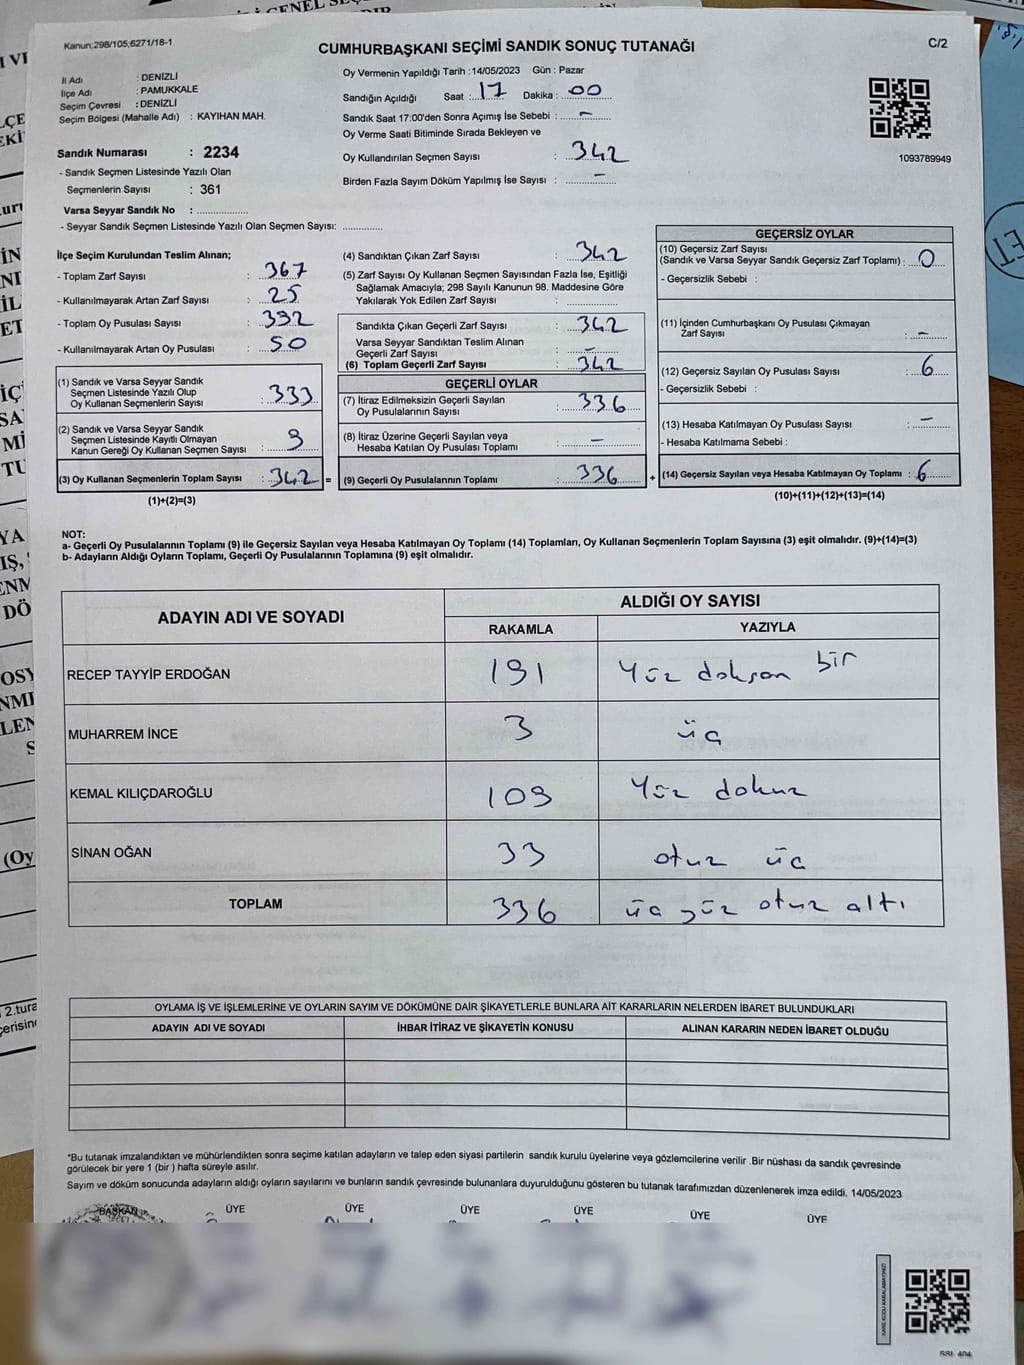 Kanun;298/105;6271/18-1
CUMHURBAŞKANI SEÇİMİ SANDIK SONUÇ TUTANAĞI
C/2
İl Adı : DENİZLİ
İlçe Adı : PAMUKKALE
Seçim Çevresi : DENİZLİ
Seçim Bölgesi (Mahalle Adı) : KAYIHAN MAH.
Sandık Numarası : 2234
- Sandık Seçmen Listesinde Yazılı Olan
Seçmenlerin Sayısı : 361
Varsa Seyyar Sandık No : ..................
- Seyyar Sandık Seçmen Listesinde Yazılı Olan Seçmen Sayısı: ..............
Oy Vermenin Yapıldığı Tarih :14/05/2023 Gün : Pazar
Sandığın Açıldığı Saat : 17 Dakika : 00
Sandık Saat 17:00'den Sonra Açımış İse Sebebi : -
Oy Verme Saati Bitiminde Sırada Bekleyen ve
Oy Kullandırılan Seçmen Sayısı : 342
Birden Fazla Sayım Döküm Yapılmış İse Sayısı : -
1093789949
İlçe Seçim Kurulundan Teslim Alınan;
- Toplam Zarf Sayısı : 367
- Kullanılmayarak Artan Zarf Sayısı : 25
- Toplam Oy Pusulası Sayısı : 392
- Kullanılmayarak Artan Oy Pusulası : 50
(1) Sandık ve Varsa Seyyar Sandık
Seçmen Listesinde Yazılı Olup
Oy Kullanan Seçmenlerin Sayısı : 333
(2) Sandık ve Varsa Seyyar Sandık
Seçmen Listesinde Kayıtlı Olmayan
Kanun Gereği Oy Kullanan Seçmen Sayısı : 9
(3) Oy Kullanan Seçmenlerin Toplam Sayısı : 342 =
(1)+(2)=(3)
(4) Sandıktan Çıkan Zarf Sayısı : 342
(5) Zarf Sayısı Oy Kullanan Seçmen Sayısından Fazla İse, Eşitliği
Sağlamak Amacıyla; 298 Sayılı Kanunun 98. Maddesine Göre
Yakılarak Yok Edilen Zarf Sayısı : ..............
Sandıkta Çıkan Geçerli Zarf Sayısı : 342
Varsa Seyyar Sandıktan Teslim Alınan
Geçerli Zarf Sayısı : -
(6) Toplam Geçerli Zarf Sayısı : 342
GEÇERLİ OYLAR
(7) İtiraz Edilmeksizin Geçerli Sayılan
Oy Pusulalarının Sayısı : 336
(8) İtiraz Üzerine Geçerli Sayılan veya
Hesaba Katılan Oy Pusulası Toplamı : -
(9) Geçerli Oy Pusulalarının Toplamı : 336 +
GEÇERSİZ OYLAR
(10) Geçersiz Zarf Sayısı
(Sandık ve Varsa Seyyar Sandık Geçersiz Zarf Toplamı) : 0
- Geçersizlik Sebebi :
(11) İçinden Cumhurbaşkanı Oy Pusulası Çıkmayan
Zarf Sayısı : -
(12) Geçersiz Sayılan Oy Pusulası Sayısı : 6
- Geçersizlik Sebebi :
(13) Hesaba Katılmayan Oy Pusulası Sayısı : -
- Hesaba Katılmama Sebebi :
(14) Geçersiz Sayılan veya Hesaba Katılmayan Oy Toplamı : 6
(10)+(11)+(12)+(13)=(14)
NOT:
a- Geçerli Oy Pusulalarının Toplamı (9) ile Geçersiz Sayılan veya Hesaba Katılmayan Oy Toplamı (14) Toplamları, Oy Kullanan Seçmenlerin Toplam Sayısına (3) eşit olmalıdır. (9)+(14)=(3)
b- Adayların Aldığı Oyların Toplamı, Geçerli Oy Pusulalarının Toplamına (9) eşit olmalıdır.
ADAYIN ADI VE SOYADI
ALDIĞI OY SAYISI
RAKAMLA YAZIYLA
RECEP TAYYİP ERDOĞAN 191 Yüz doksan bir
MUHARREM İNCE 3 üç
KEMAL KILIÇDAROĞLU 109 Yüz dokuz
SİNAN OĞAN 33 otuz üç
TOPLAM 336 üç yüz otuz altı
OYLAMA İŞ VE İŞLEMLERİNE VE OYLARIN SAYIM VE DÖKÜMÜNE DAİR ŞİKAYETLERLE BUNLARA AİT KARARLARIN NELERDEN İBARET BULUNDUKLARI
ADAYIN ADI VE SOYADI İHBAR İTİRAZ VE ŞİKAYETİN KONUSU ALINAN KARARIN NEDEN İBARET OLDUĞU
*Bu tutanak imzalandıktan ve mühürlendikten sonra seçime katılan adayların ve talep eden siyasi partilerin sandık kurulu üyelerine veya gözlemcilerine verilir .Bir nüshası da sandık çevresinde
görülecek bir yere 1 (bir ) hafta süreyle asılır.
Sayım ve döküm sonucunda adayların aldığı oyların sayılarını ve bunların sandık çevresinde bulunanlara duyurulduğunu gösteren bu tutanak tarafımızdan düzenlenerek imza edildi. 14/05/2023
BAŞKAN ÜYE ÜYE ÜYE ÜYE ÜYE ÜYE